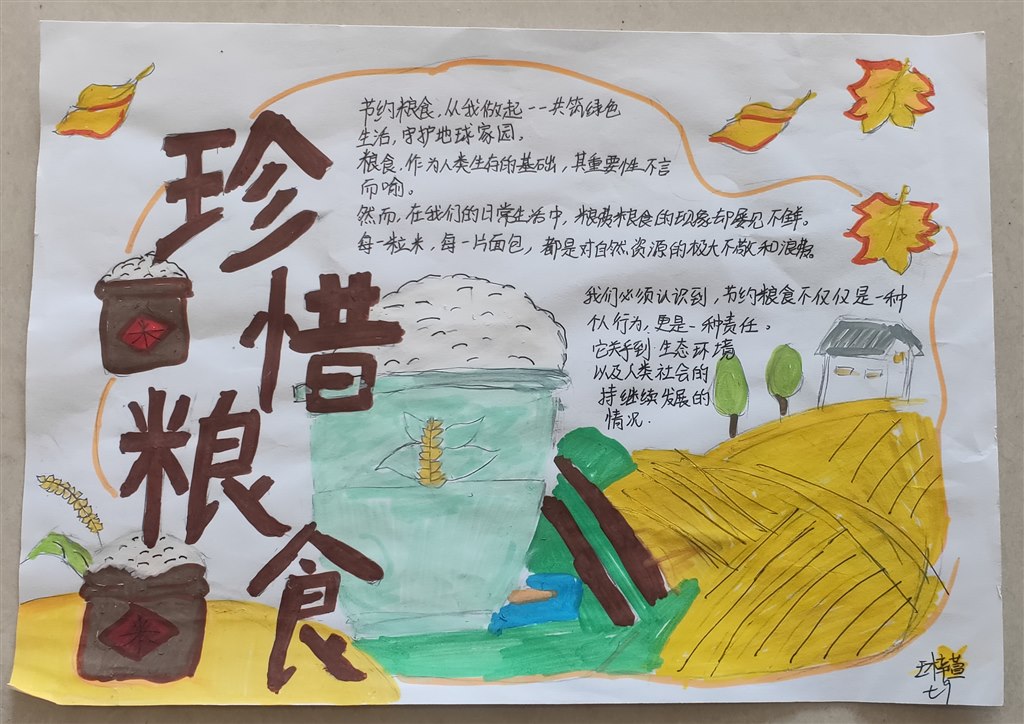 珍惜粮食
节约粮食,从我做起--共筑绿色
生活,守护地球家园。
粮食,作为人类生存的基础,其重要性不言
而喻。
然而,在我们的日常生活中,粮食的现象却屡见不鲜。
每一粒米,每一片面包,都是对自然资源的极大不敬和浪费。
我们必须认识到,节约粮食不仅仅是一种
个人行为,更是一种责任。
它关乎到生态环境
以及人类社会的
持继续发展的
情况.
米
王梓萱
七9